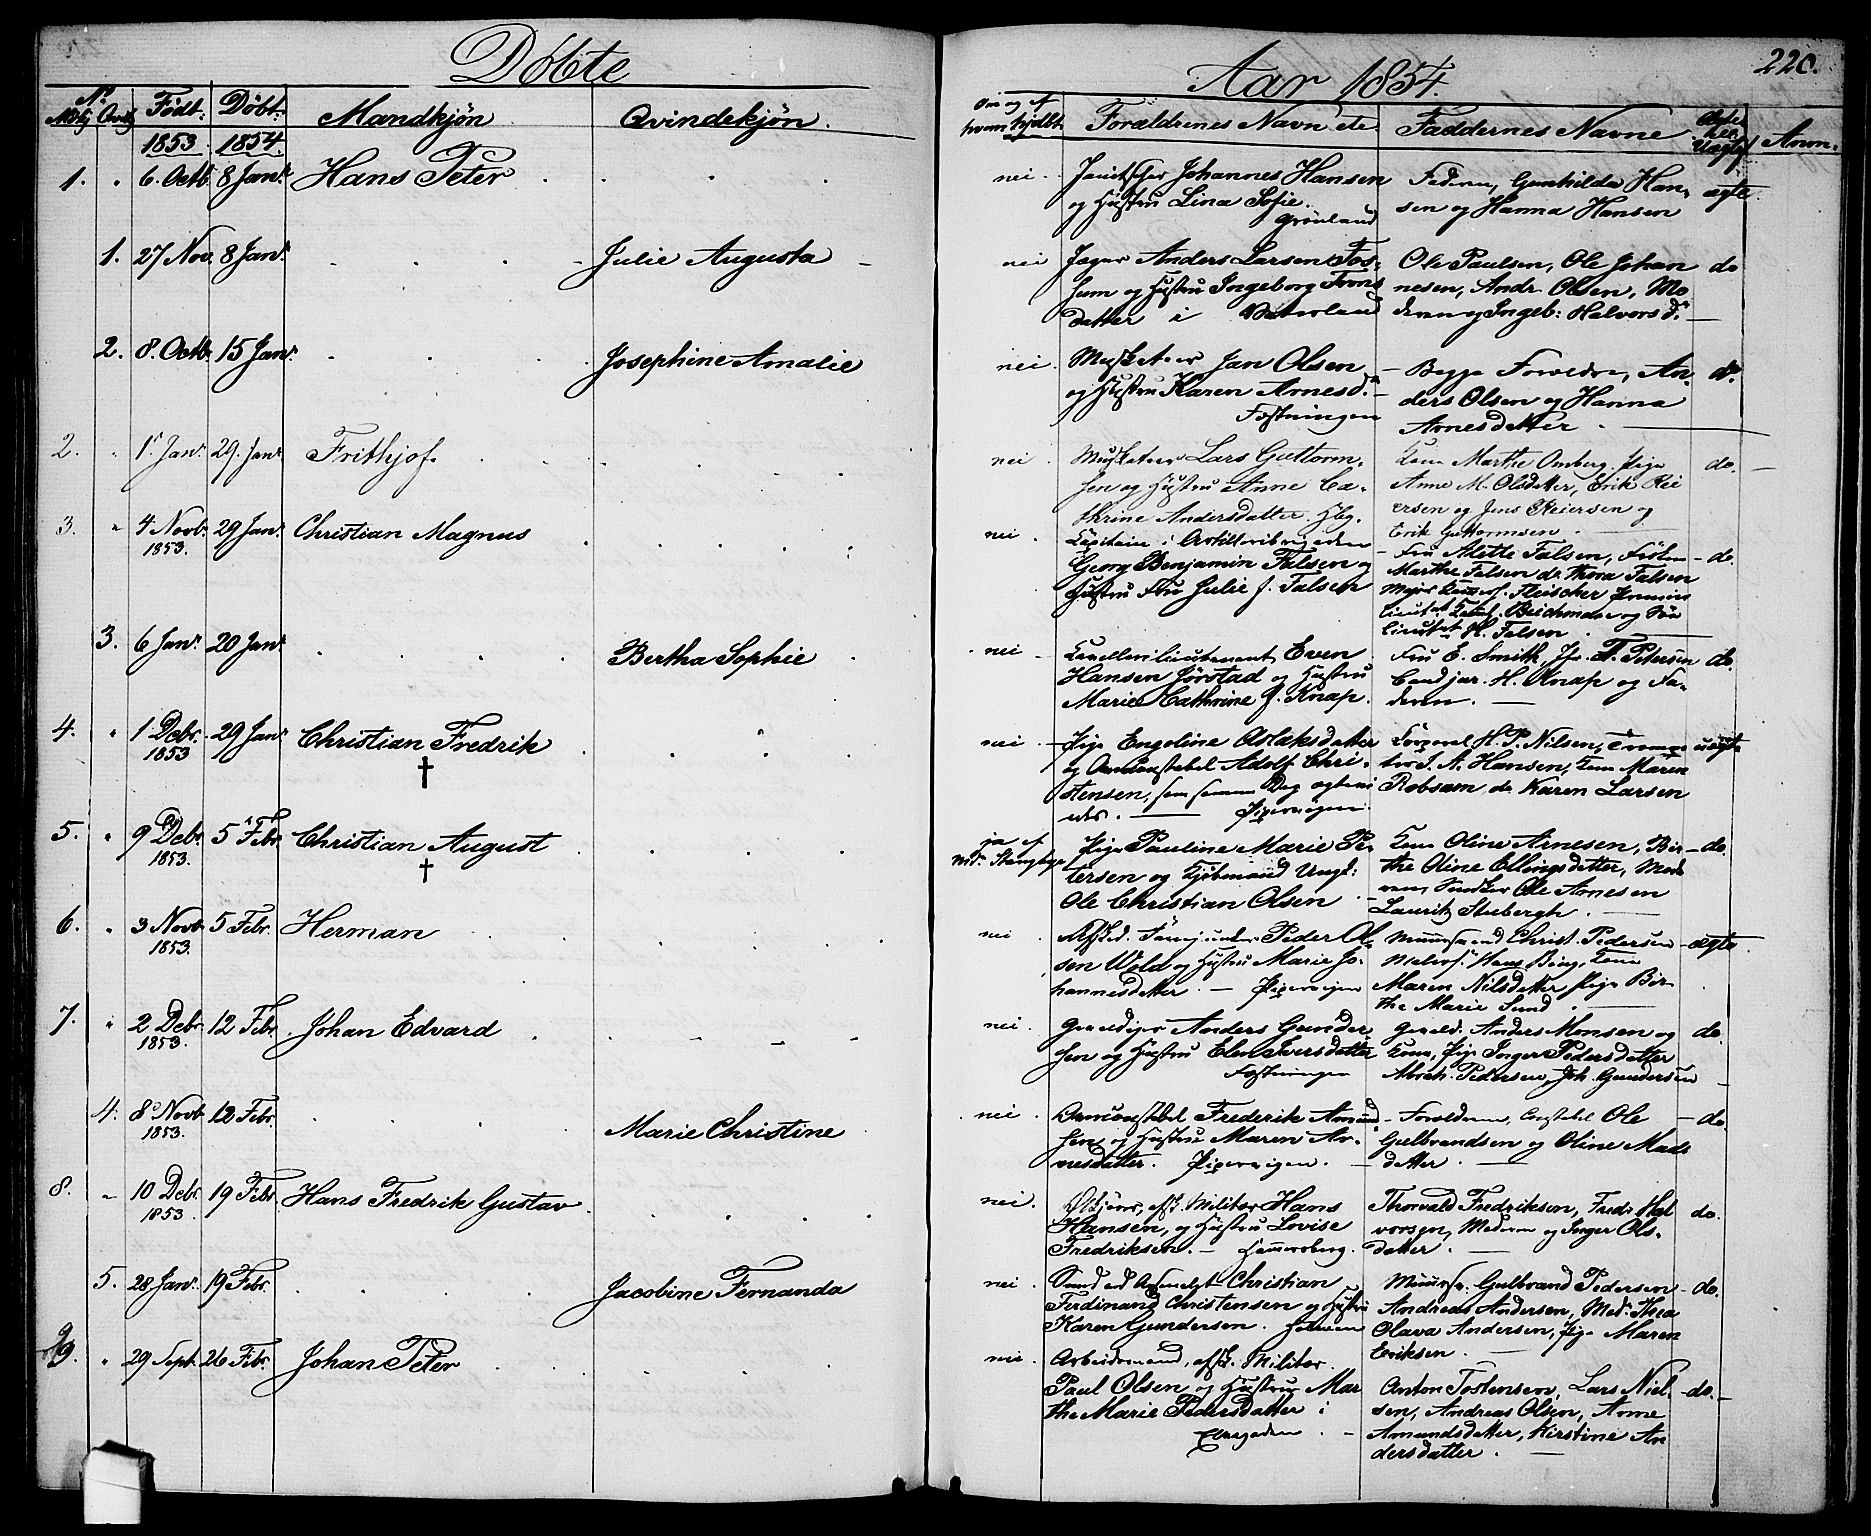 Döbte
Aar 1854.
220.
No
Mkj Qvkj Födt: Döbt: Mandkjön. Qvindekjön. Om og af hvem hjdbt Forældrenes Navn etc. Faddernes Navne Ægte Uægte Anm.
1853 1854
1. " 6. Octb. 8 Janr. Hans Peter
nei. Johannes Hansen
og Hustru Lina Sofie.
Grønland
Faderen, Gunhilda Han-
sen og Hanna Hansen
ægte.
1. 27 Nov. 8 Janr. Julie Augusta
nei Jæger Anders Larsen Fos-
sum og Hustru Ingeborg Trons
datter i Vaterland
Ole Paulsen, Ole Johan
nesen, Andr. Olsen, Mo
deren og Ingeb: Halvorsd.
do
2. 8. Octb. 15 Janr. Josephine Amalie
nei. Musketeer Jan Olsen
og Hustru Karen Arnesd.
Fæstningen
Begge Forældre, An-
ders Olsen og Hanna
Arnesdatter.
do.
2. " 1. Janr. 29. Janr. Frithjof.
nei. Musketeer Lars Guttorm-
sen og Hustru Anne Ca-
thrine Andersdatter. Hbg.
Kone Marthe Omberg. Pige
Anne M. Olsdatter, Erik Rei
ersen og Jens Reiersen og
Erik Guttormsen.
do.
3. " 4 Novb. 1853. 29 Janr. Christian Magnus
nei. Capitain i Artilleribrigaden
Georg Benjamin Falsen og
Hustru Fru Julie f. Falsen
Fru Alette Falsen, Frøken
Marthe Falsen do. Thora Falsen
Major Fleischer Premier
Lieutnt. Beichmder og Søn
Lieutnt. H. Falsen.
do.
3. 6 Janr. 20 Janr. Bertha Sophie
nei Cavallerilieutenant Even
Hansen Jörstad og Hustru
Marie Cathrine f. Knap.
Fru E. Smith, Jfr. T. Petersen
Cand jur. H. Knap og Fa-
deren.
do.
4. " 1 Debr. 1853 29 Janr. Christian Fredrik †
nei. Pige Engeline Aslaksdatter
og Adolf Chri-
stensen, som samme Dag ægtevi
edes. Pipervigen
Korporal H. P. Nilsen,
S. A. Hansen, Kone Maren
Robsam do. Karen Larsen
uægte
5. " 9 Debr. 1853. 5 Febr. Christian August †
ja af Md. Stangbye
Pige Pauline Marie Pe
tersen og Kjöbmand Ungk:
Ole Christian Olsen.
Kone Oline Arnesen, Bir-
the Oline Ellingsdatter, Mod
ren, Snedker Ole Arnesen
Lauritz Stubergh.
do.
6. " 3 Novb. 1853. 5 Febr. Herman
nei. Afsked. Peder Ol
sen Wold og Hustru Marie Jo-
hannesdatter. Pipervigen
Muursvend Christ. Pedersen
Hans Berg, Kone
Maren Nilsdatter Pige Bir-
the Marie Lund
ægte
7. " 2 Debr. 1853. 12 Febr. Johan Edvard
nei. Anders Gunder
sen og Hustru Elen Iversdatter
Fæstningen
Anders Monsen og
Kone, Pige Inger Pedersdatter
Abrah. Pedersen, Joh. Gundersen
do.
4. 8 Novb. 1853. 12 Febr. Marie Christine
nei. Frederik Amund
sen og Hustru Maren Ar-
nesdatter. Pipervigen.
Forældrene, Constabel Ole
Gulbrandsen og Oline Mads
datter.
do.
8. " 10 Debr. 1853. 19 Febr. Hans Fredrik Gustav
nei. afsk. Militær Hans
Hansen, og Hustru Lovise
Fredriksen. Hammersborg.
Thorvald Fredriksen, Fredr. Hal
vorsen, Moderen og Inger Ols-
datter.
do.
5. 28 Janr. 19 Febr. Jacobine Fernanda
nei. Christian
Ferdinand Christensen og Hustru
Karen Gundersen.
Muurs. Gulbrand Pedersen
Andreas Andersen, Mod. Thea
Olava Andersen, Pige Maren
Eriksen.
do.
9. " 29 Sept. 26 Febr. Johan Peter
nei. Arbeidsmand, afsk. Militær
Paul Olsen og Hustru Mar
the Marie Pedersdatter i
Anton Tostensen, Lars Niel-
sen, Andreas Olsen, Anne
Amundsdatter, Kirstine An
dersdatter.
do.